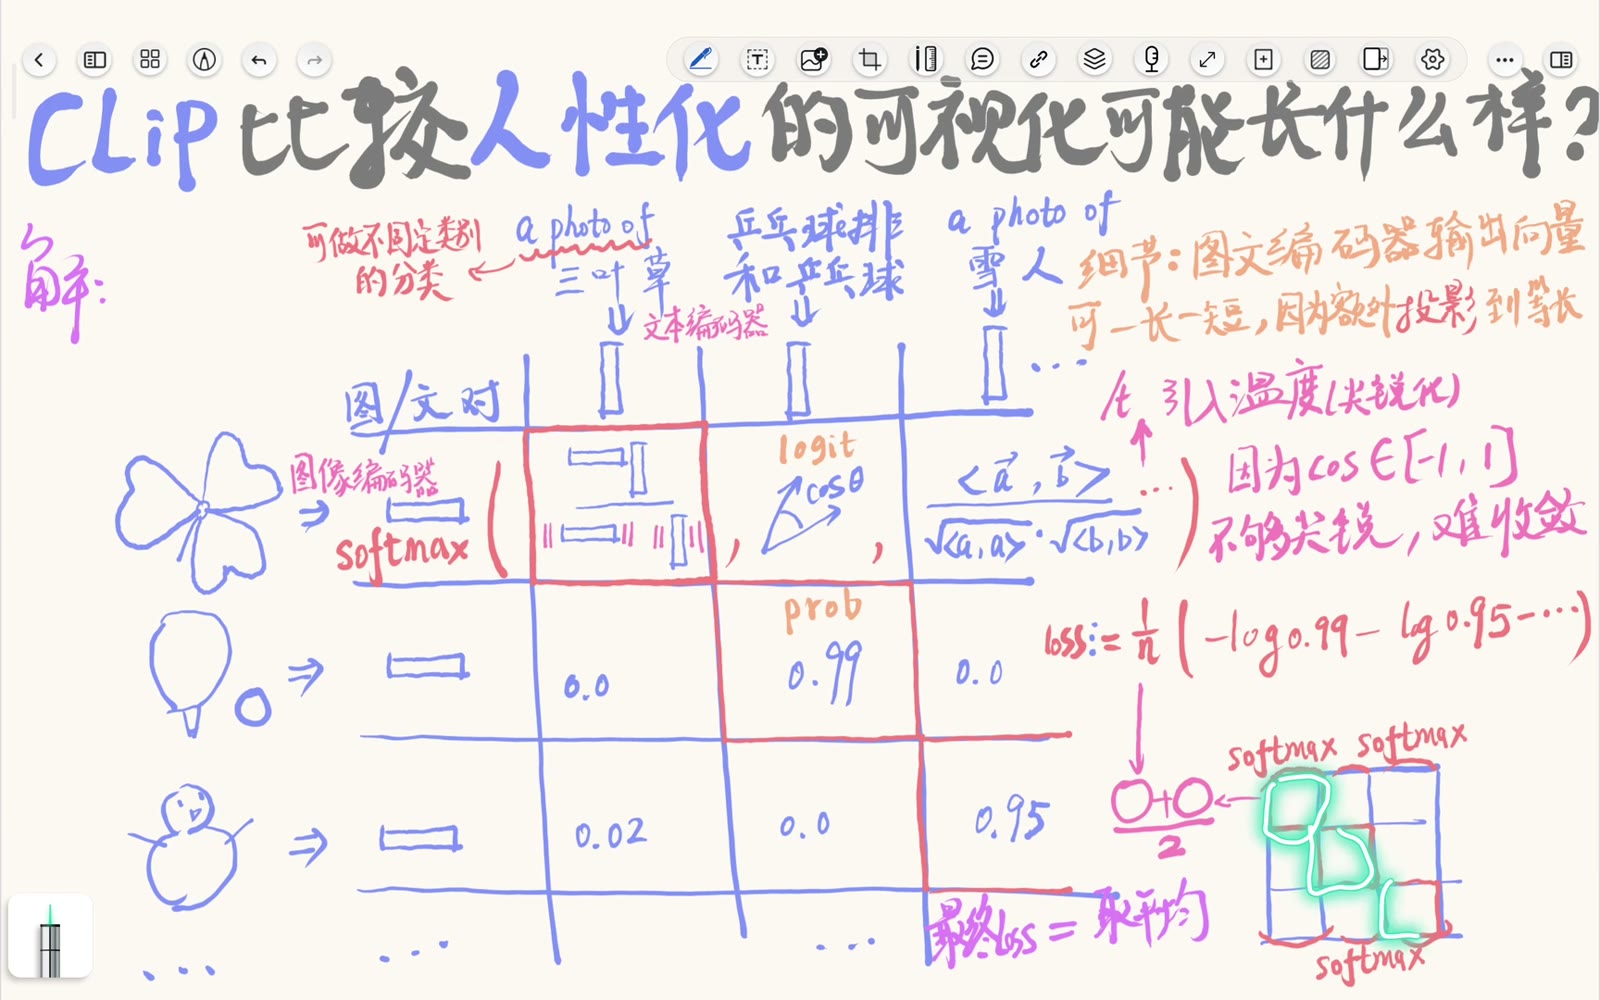 CLiP 比较人性化的可视化可能长什么样?
解:
可做不固定类别
的分类
a photo of
三叶草
乒乓球排
和乒乓球
a photo of
雪人
细节:图文编码器输出向量
可一长一短,因为额外投影到等长
文本编码器
图/文对
...
/t 引入温度(尖锐化)
因为cos∈[-1,1]
不够尖锐,难收敛
图像编码器
softmax
(
,
logit
cosθ
,
<a⃗,b⃗>
√<a,a>·√<b,b>
...
)
prob
0.0
0.99
0.0
loss:= 1/n (-log0.99- log0.95-...)
0.02
0.0
0.95
O+O
2
softmax softmax
softmax
最终loss = 取平均
...
...
...